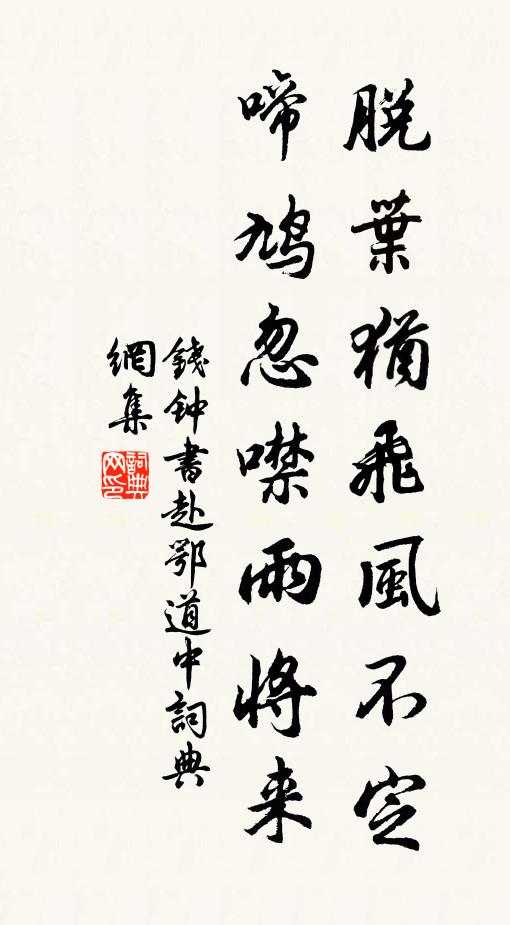 脱葉猶飛風不定
啼鳩忽噤雨將来
錢钟書赴鄂道中詞典
網集
詞典网印